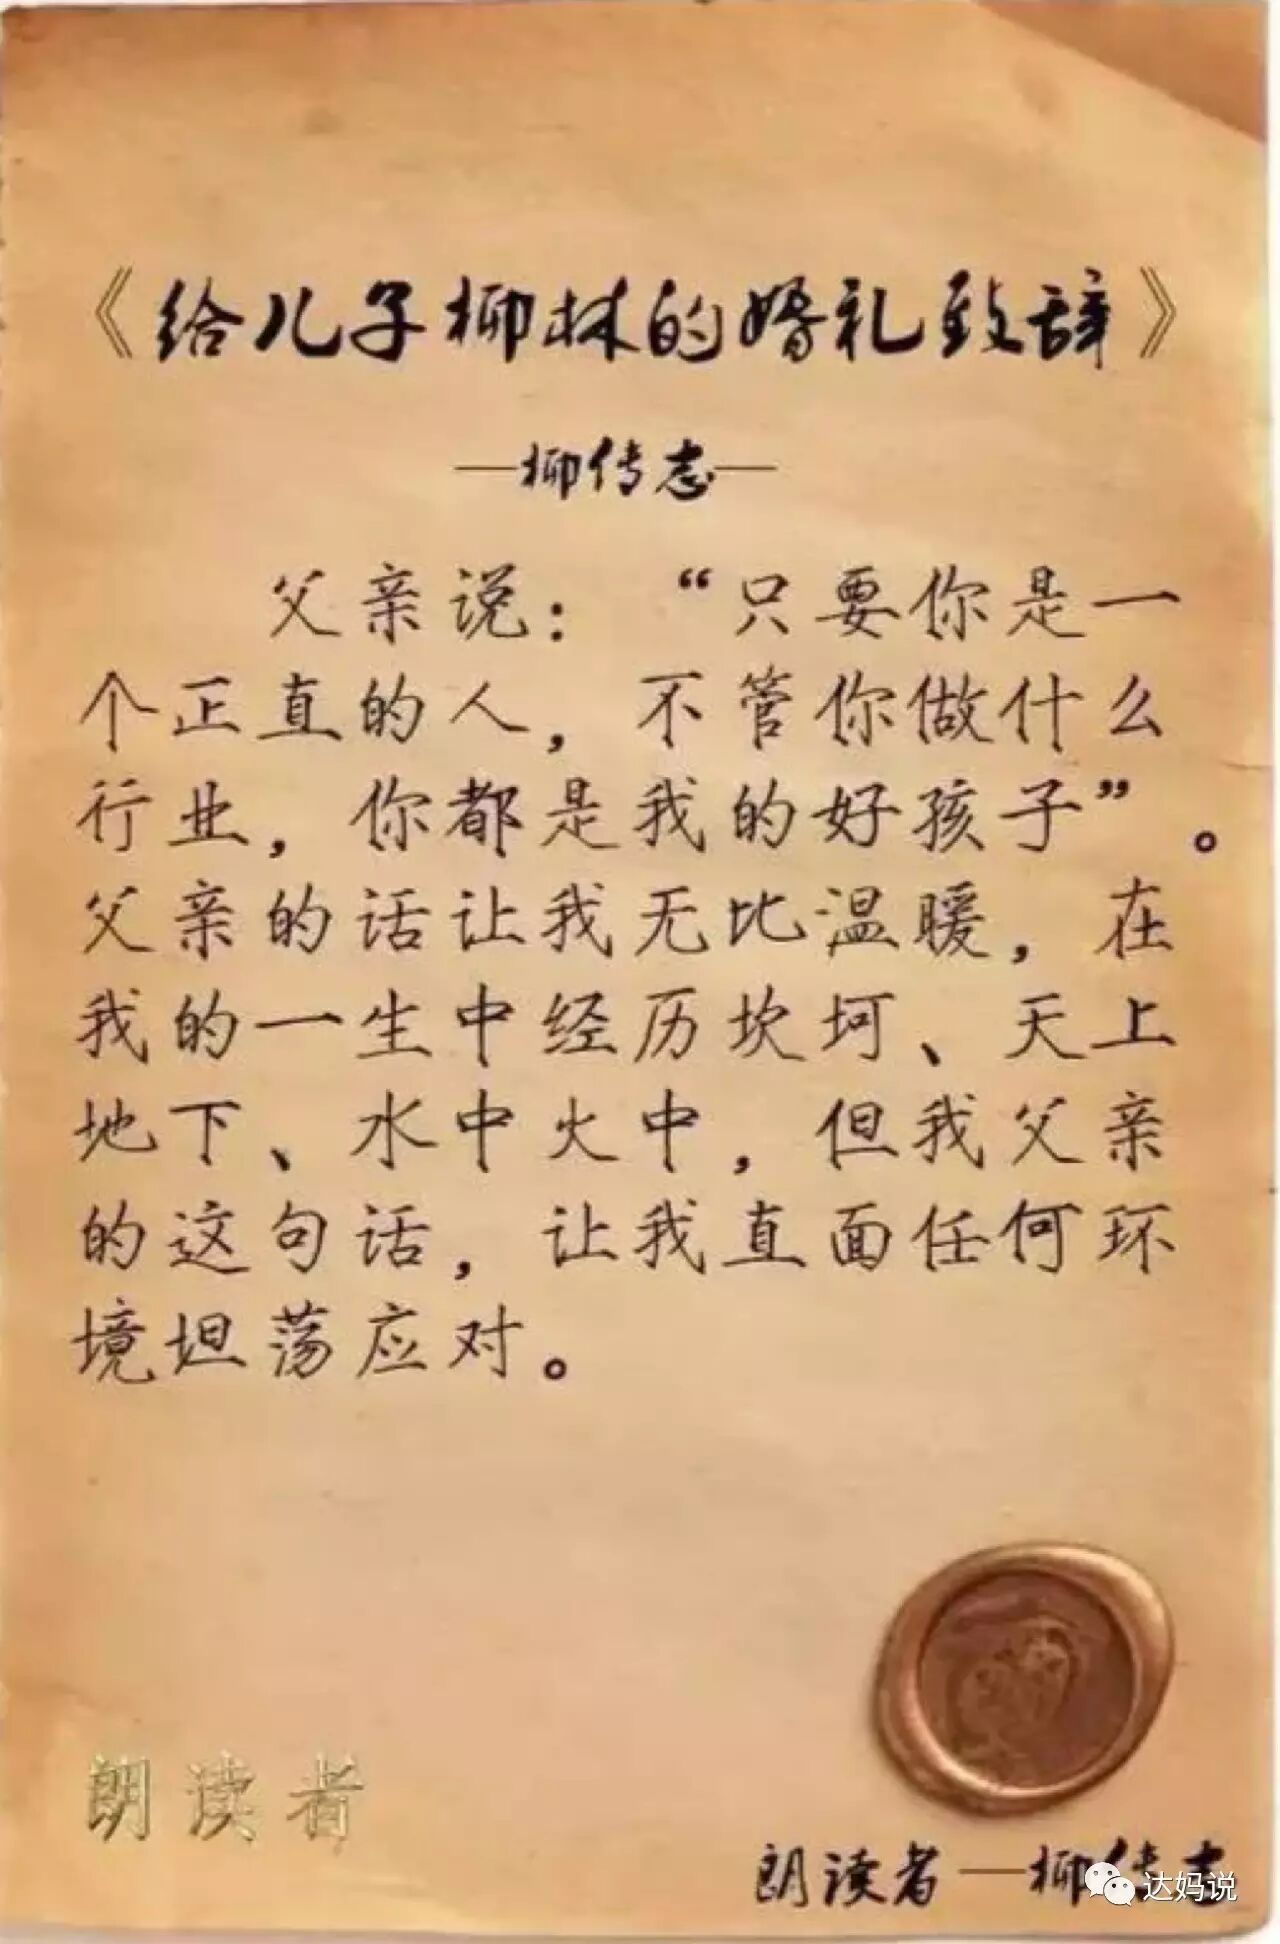 《给儿子柳林的婚礼致辞》
—柳传志—
父亲说：“只要你是一
个正直的人，不管你做什么
行业，你都是我的好孩子”。
父亲的话让我无比温暖，在
我的一生中经历坎坷、天上
地下、水中火中，但我父亲
的这句话，让我直面任何环
境坦荡应对。
朗读者
朗读者—柳传志
达妈说